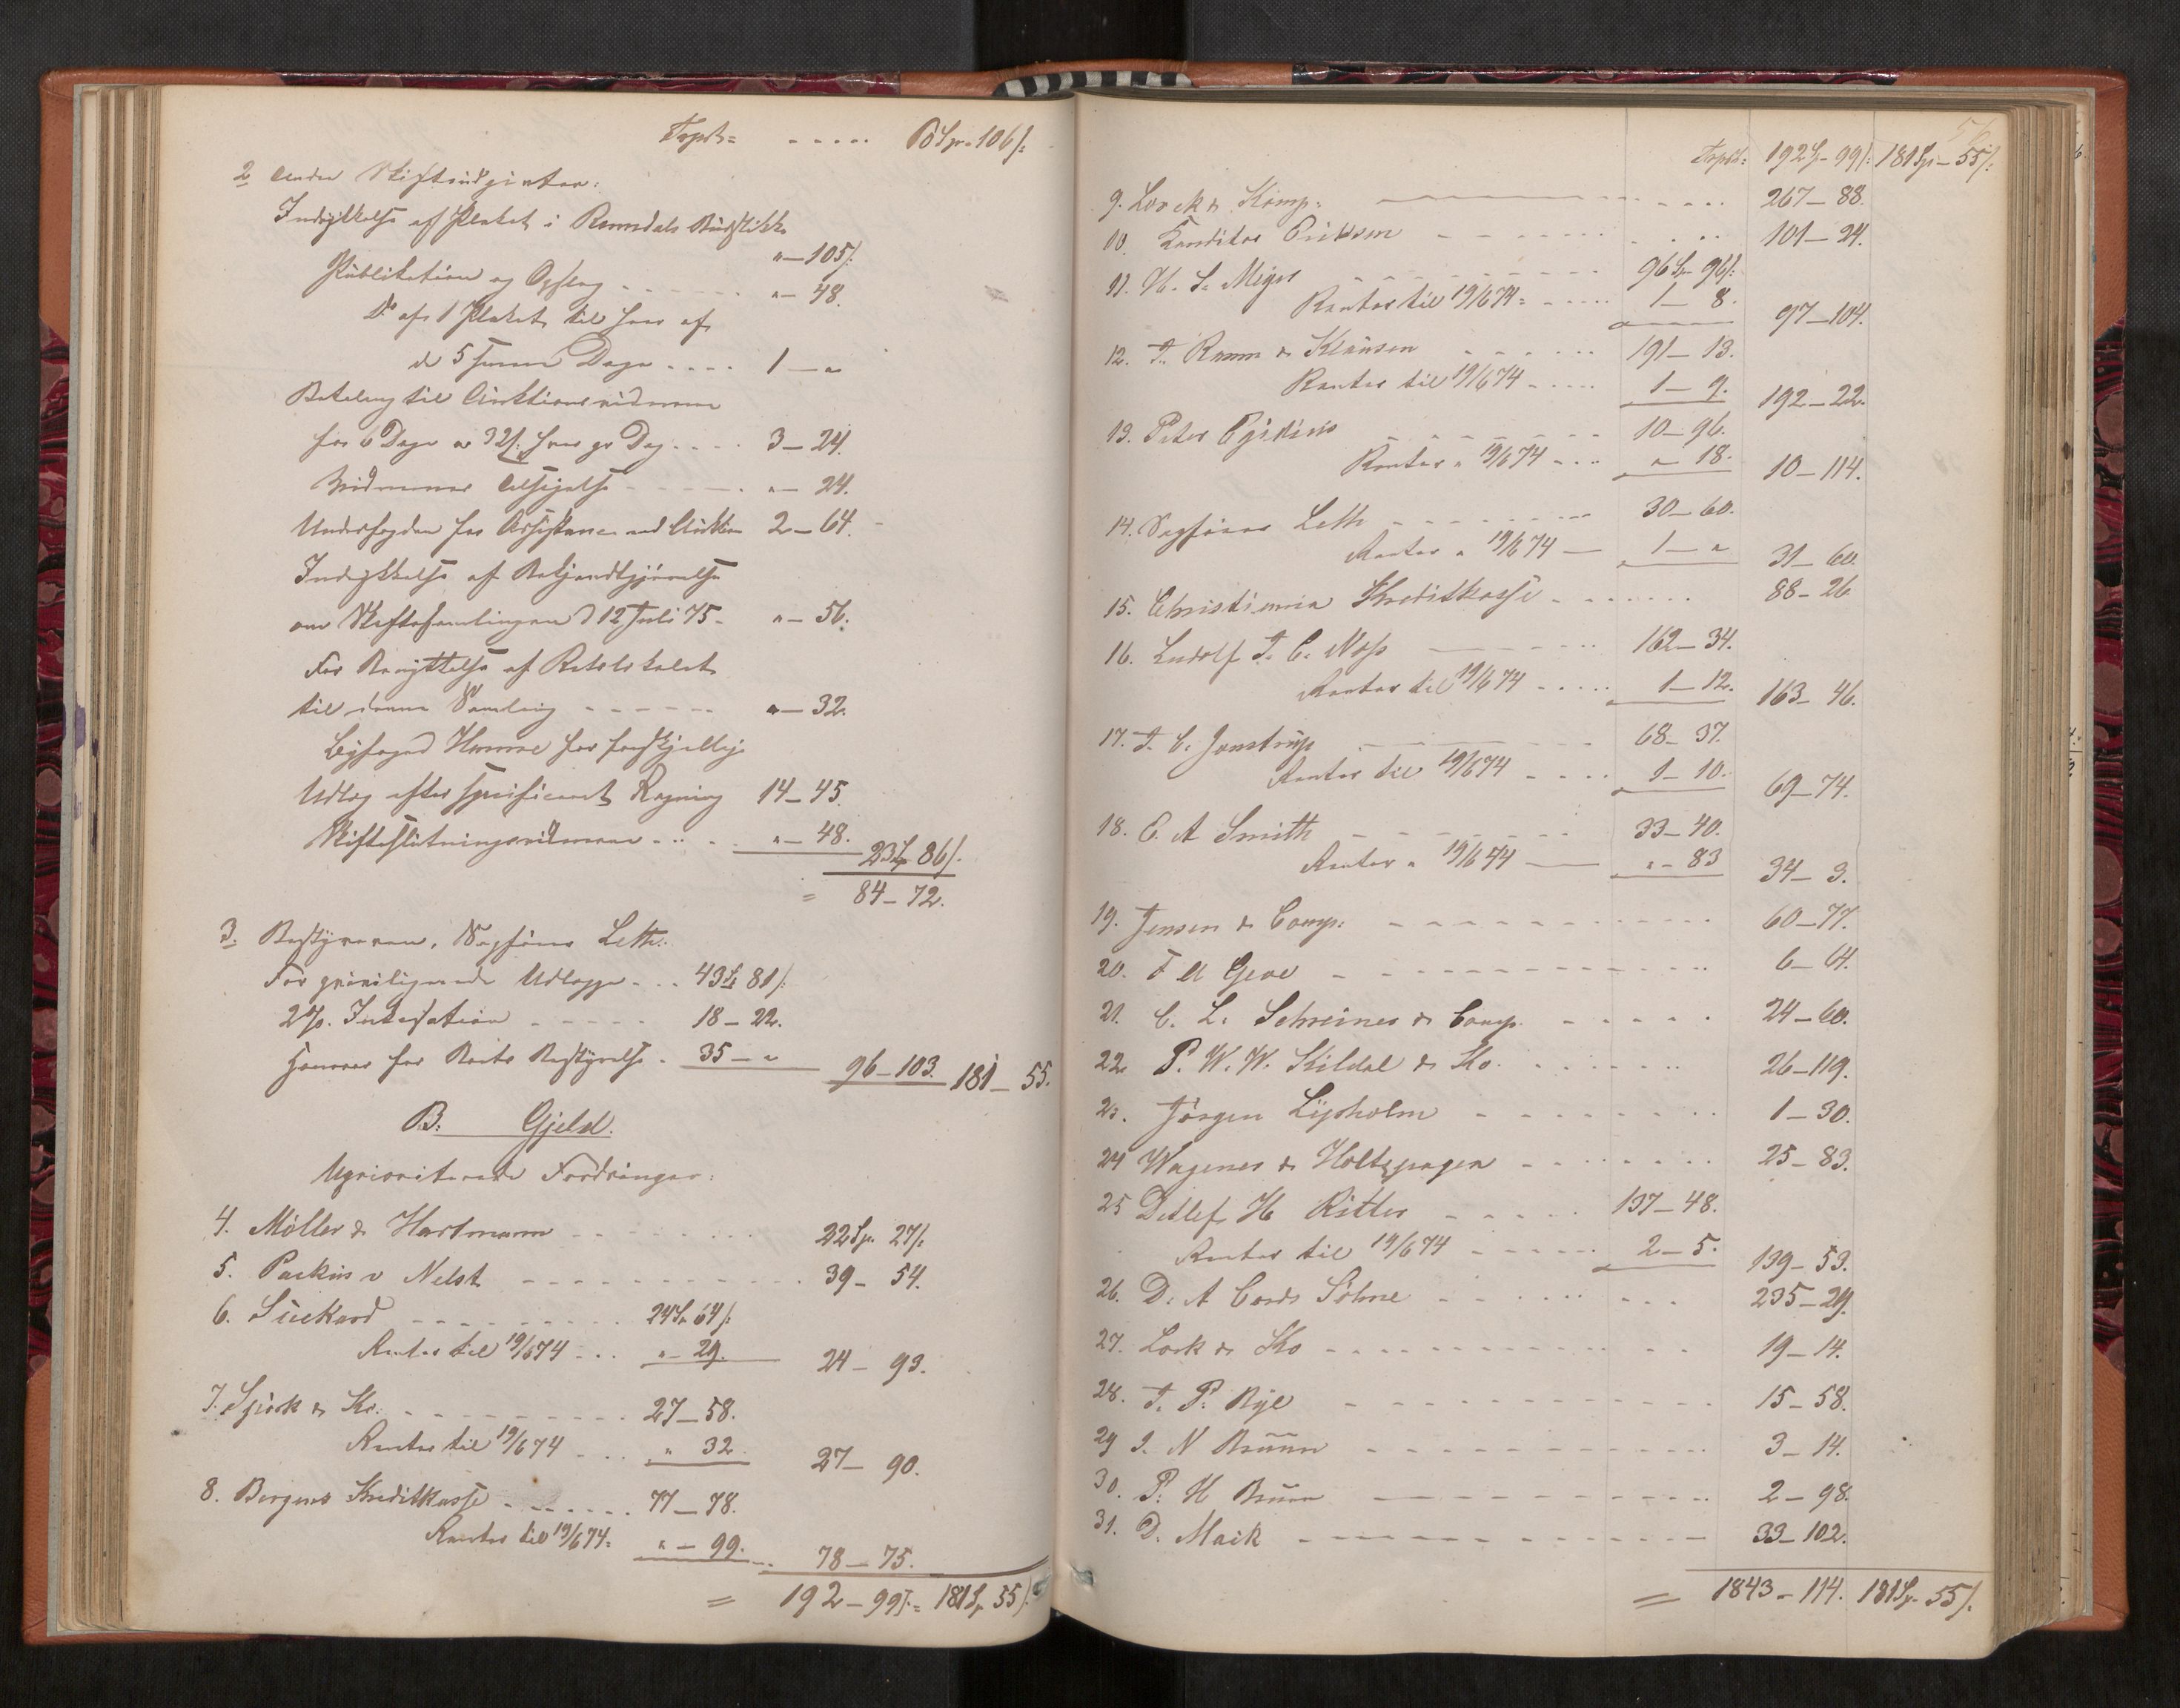 Trpt= 60 Spr. 106 s:
2 Andre Skifteudgivter:
Indrykkelse af Plakat i Romsdals Budstikke "–105 s:
Publikation og Opslag "– 48.
Do af 1 Plakat til hver af
de 5 Dage 1–"
Betaling til Auktionsvidnerne
for 6 Dage a 32 s. hver pr Dag 3–24.
Vidnernes Tilsigelse "– 24.
Underfogden for Assistance ved Auktion 2–64.
Indrykkelse af Bekjendtgjørelse
om Skiftesamlingen d 12 Juli 75 "– 56.
For Benyttelse af Retslokalet
til denne Samling "– 32.
Byfoged for forskjellige
Udlæg efter specificeret Regning 14–45.
Skifteslutningsvidnerne "– 48. 23 Sp 86 s.
= 84–72.
3. Bestyreren, Sagfører Leth:
For privilegerede Udlægge 43 Sp 81 s:
2 % Inkassation 18–22.
Honorar for Boets Bestyrelse 35–" 96–103. 181–55.
B. Gjeld.
Uprioriterede Fordringer:
4. Möller & Hartmann 22 Spr. 27 s:
5. Nelst 39– 54.
6. Suckard 24 Sp 64 s:
Renter til 19/6 74 "– 29. 24– 93.
7. Spörk & Ko: 27–58.
Renter til 19/6 74 " 32. 27– 90.
8. Bergens Kreditkasse 77–78.
Renter til 19/6 74 "– 99. 78–75.
= 192–99 s. = 181 Sp 55 s.
56
Trpt: 192 Sp–99 s: 181 Sp–55 s:
9. Lorck & Komp: 267–88.
10. Konditor Eriksen 101–24.
11. H. S. Meyer 96 Sp 96 s:
Renter til 19/6 74 1– 8. 97–104.
12. T. Ramm & Klausen 191–13.
Renter til 19/6 74 1– 9. 192–22.
13. Peter Egidius 10–96.
Renter " 19/6 74 "– 18. 10–114.
14. Sagfører Leth 30–60.
Renter " 19/6 74 1–" 31–60.
15. Christiania Kreditkasse 88–26
16. Ludolf T. C. Moss 162–34.
Renter til 19/6 74 1–12. 163–46.
17. T. C. Jonstrup 68–37.
Renter til 19/6 74 1–10. 69–74.
18. C. A Smith 33–40.
Renter " 19/6 74 "–83 34– 3.
19. Jensen & Comp: 60–77.
20. F A 6–64.
21. C. L. Schreiner & Comp. 24–60.
22 P. W. W. Kildal & Ko. 26–119.
23. Jörgen Lysholm 1–30.
24 Wagener & 25–83.
25 Detlef H Ritter 137–48.
Renter til 19/6 74 2–5. 139–53.
26. D. A Cords Söhne 235–29.
27. Lork & Ko 19–14.
28. T. P. Rye 15–58.
29 J. N Bruun 3–14.
30. P. H Bruun 2–98.
31. D. Mack 33–102.
= 1843–114. 181 Sp. 55 s.